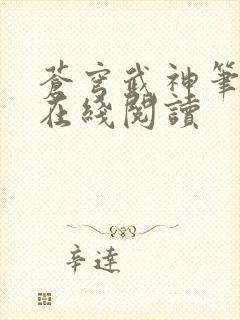 蒼穹武神筆
在綫閱讀
辛達